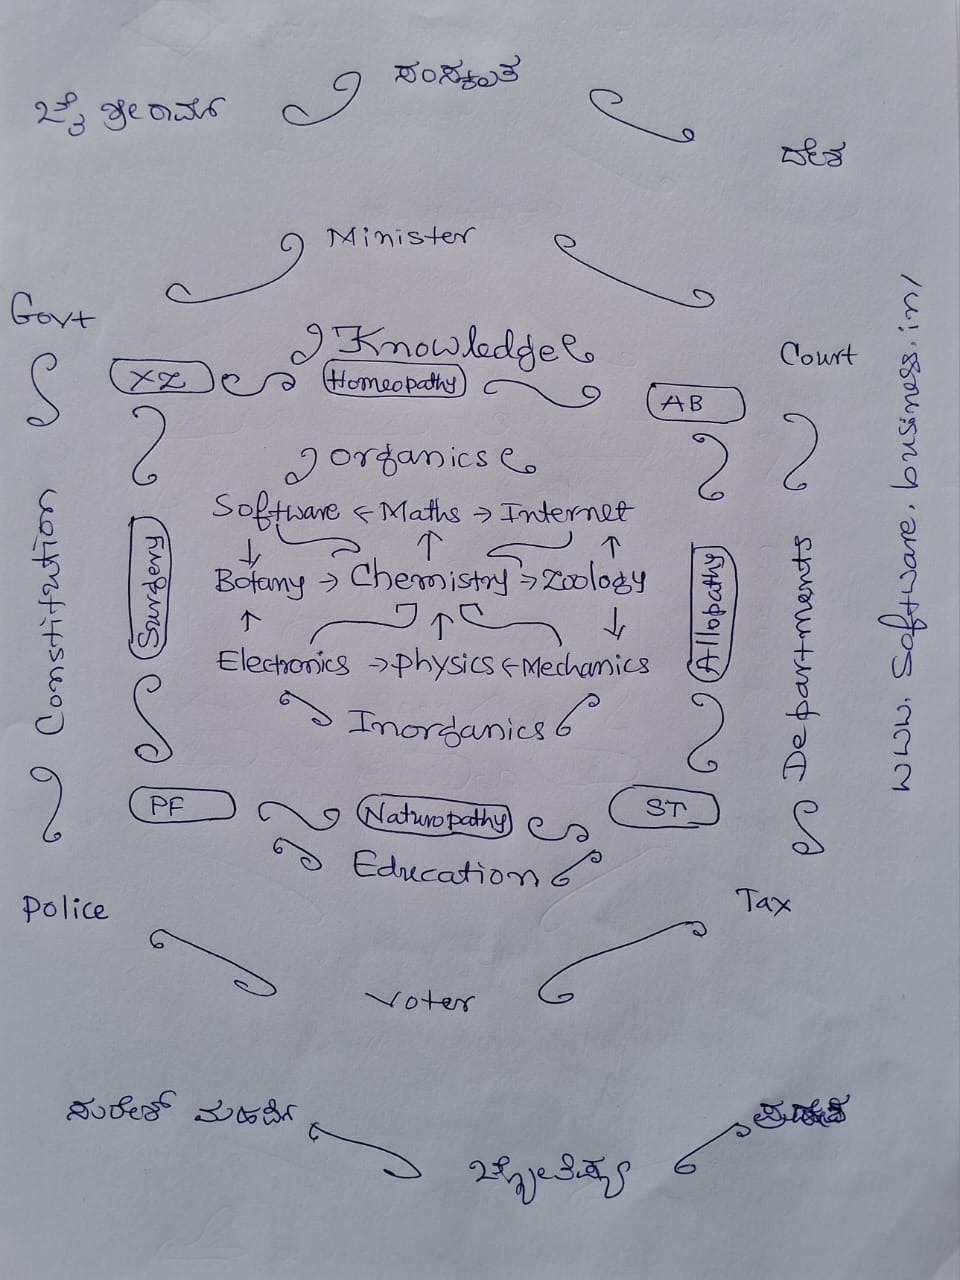 ಸಂಸ್ಕೃತ
ಜೈ ಶ್ರೀರಾಮ್
ದೇಶ
Minister
Govt
Knowledge
Court
XZ
Homeopathy
AB
organics
Software ← Maths → Internet
Botany → Chemistry → Zoology
Electronics → physics ← Mechanics
Inorganics
Constitution
Surgery
Allopathy
Departments
www.software.business.in/
PF
Naturopathy
ST
Education
Police
Tax
Voter
ಸುರೇಶ್ ಮಹರ್ಷಿ
ಜ್ಯೋತಿಷ್ಯ